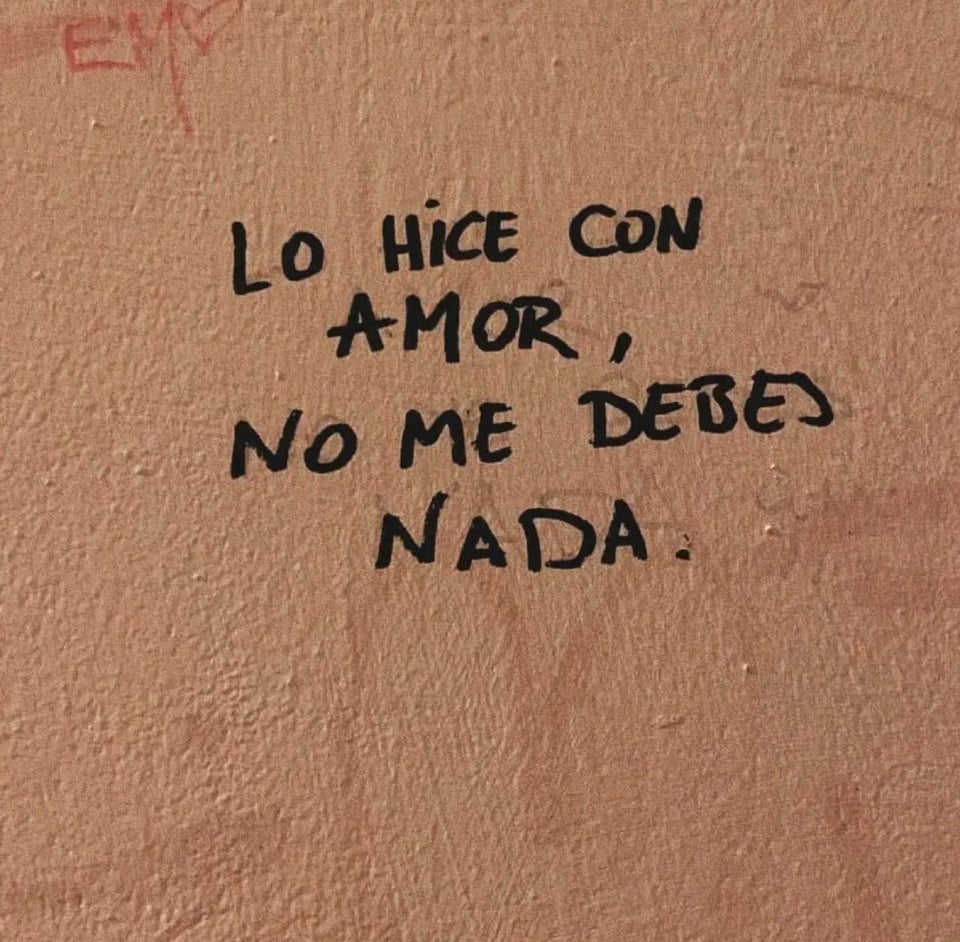 EM
LO HiCE CON
AMOR,
NO ME DEBES
NADA.